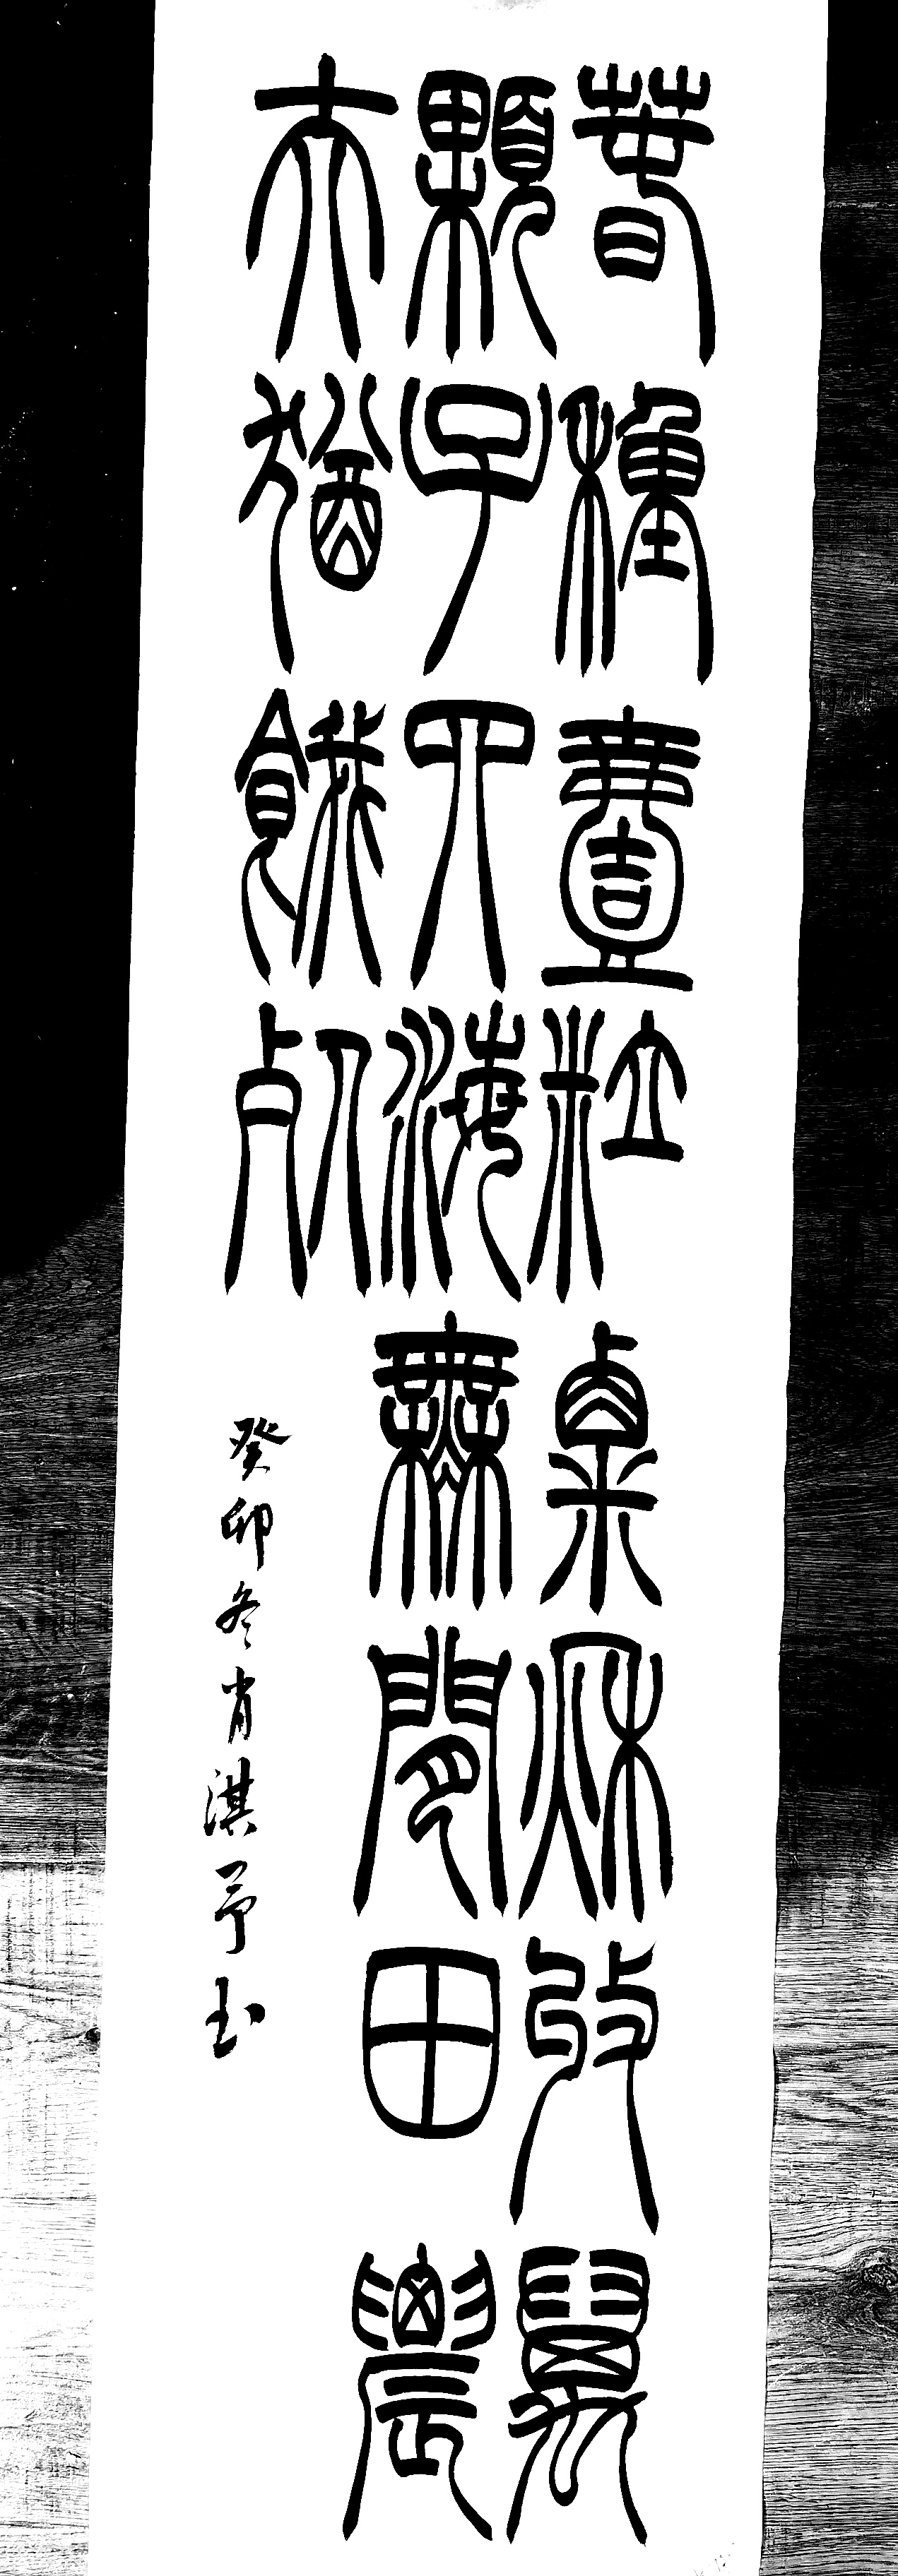 春種壹粒粟秋收萬
顆子四海無閒田農
夫猶餓死
癸卯冬肖淇予书